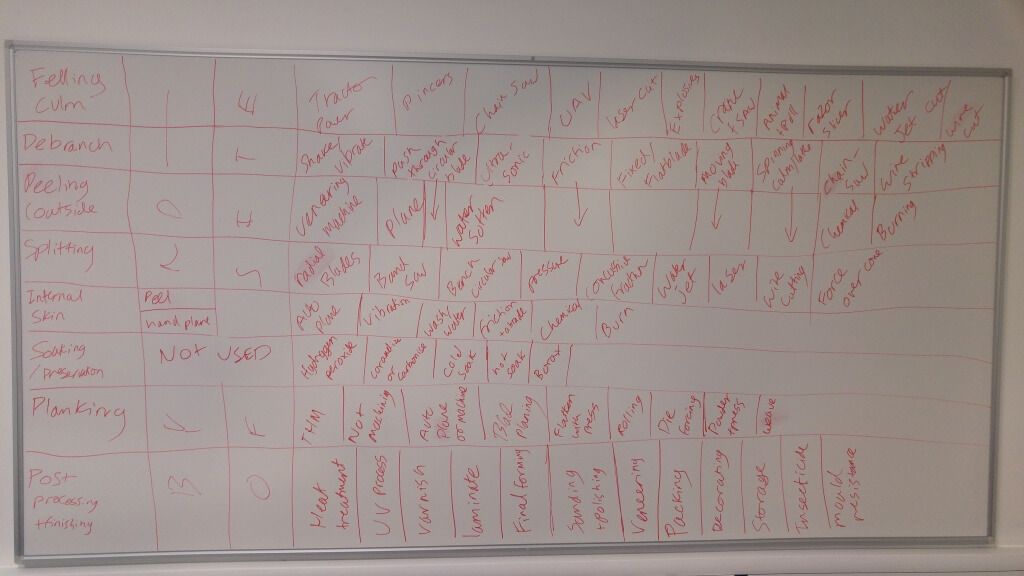 Felling
Culm
E
Tractor
Power
Pincers
Chain Saw
UAV
laser Cut
Explosives
Crane
+ Saw
Animal
+ Pull
razor
slices
Water
Jet Cut
Wire
Cut
Debranch
T
Shake/
Vibrate
Push
through
circular
blade
Ultra-
Sonic
Friction
Fixed/
Flatblade
moving
blade
Spinning
Culm/blade
Chain-
Saw
Wire
Stripping
Peeling
(outside
O
I
Veneering
machine
Plane
Water
Soften
Chemical
Burning
Splitting
S
Radial
Blades
Band
Saw
Bench
Circular saw
pressure
Water
Jet
laser
Wire
Cutting
Force
over cone
Internal
Skin
Peel
hand plane
Auto
plane
Vibration
wash/
water
friction
Chemical
Burn
Soaking
/preservation
NOT USED
Hydrogen
peroxide
caramelise or
carbonise
Cold
Soak
hot
soak
Borax
Planking
F
THM
Not
machining
Auto
Plane
or machine
Planing
Flatten
with
Press
Rolling
Die
forming
+press
weave
Post
processing
+finishing
B
O
Heat
treatment
UV Process
Varnish
laminate
Final forming
Sanding
+polishing
Veneering
Packing
Decorating
Storage
Insecticide
mould
resistance